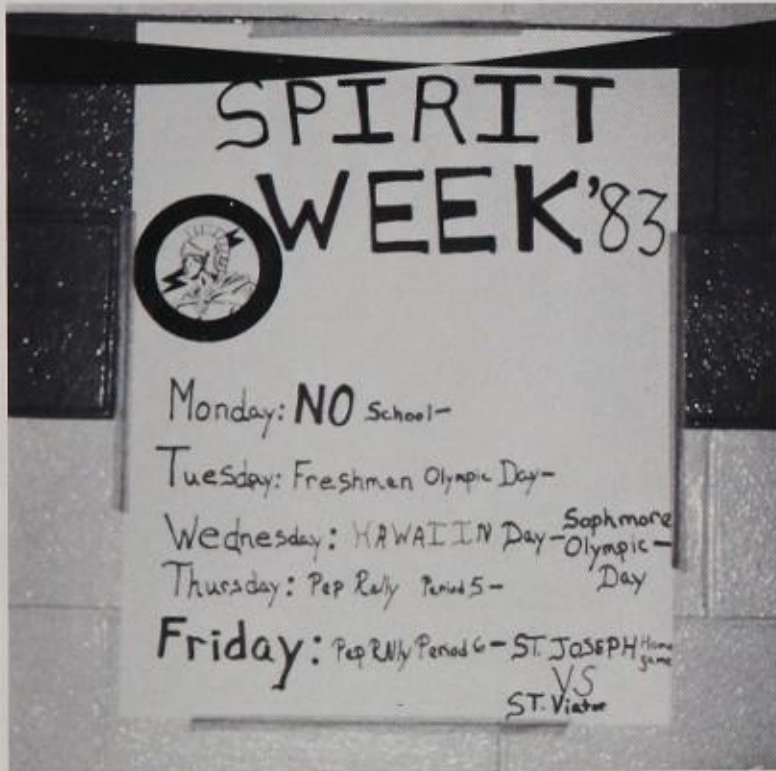 SPIRIT
WEEK '83
Monday: NO School-
Tuesday: Freshman Olympic Day-
Wednesday: HAWAIIN Day - Sophmore
Olympic -
Day
Thursday: Pep Rally Period 5-
Friday: Pep Rally Period 6 - ST. JOSEPH Home
game
VS
ST. Viator